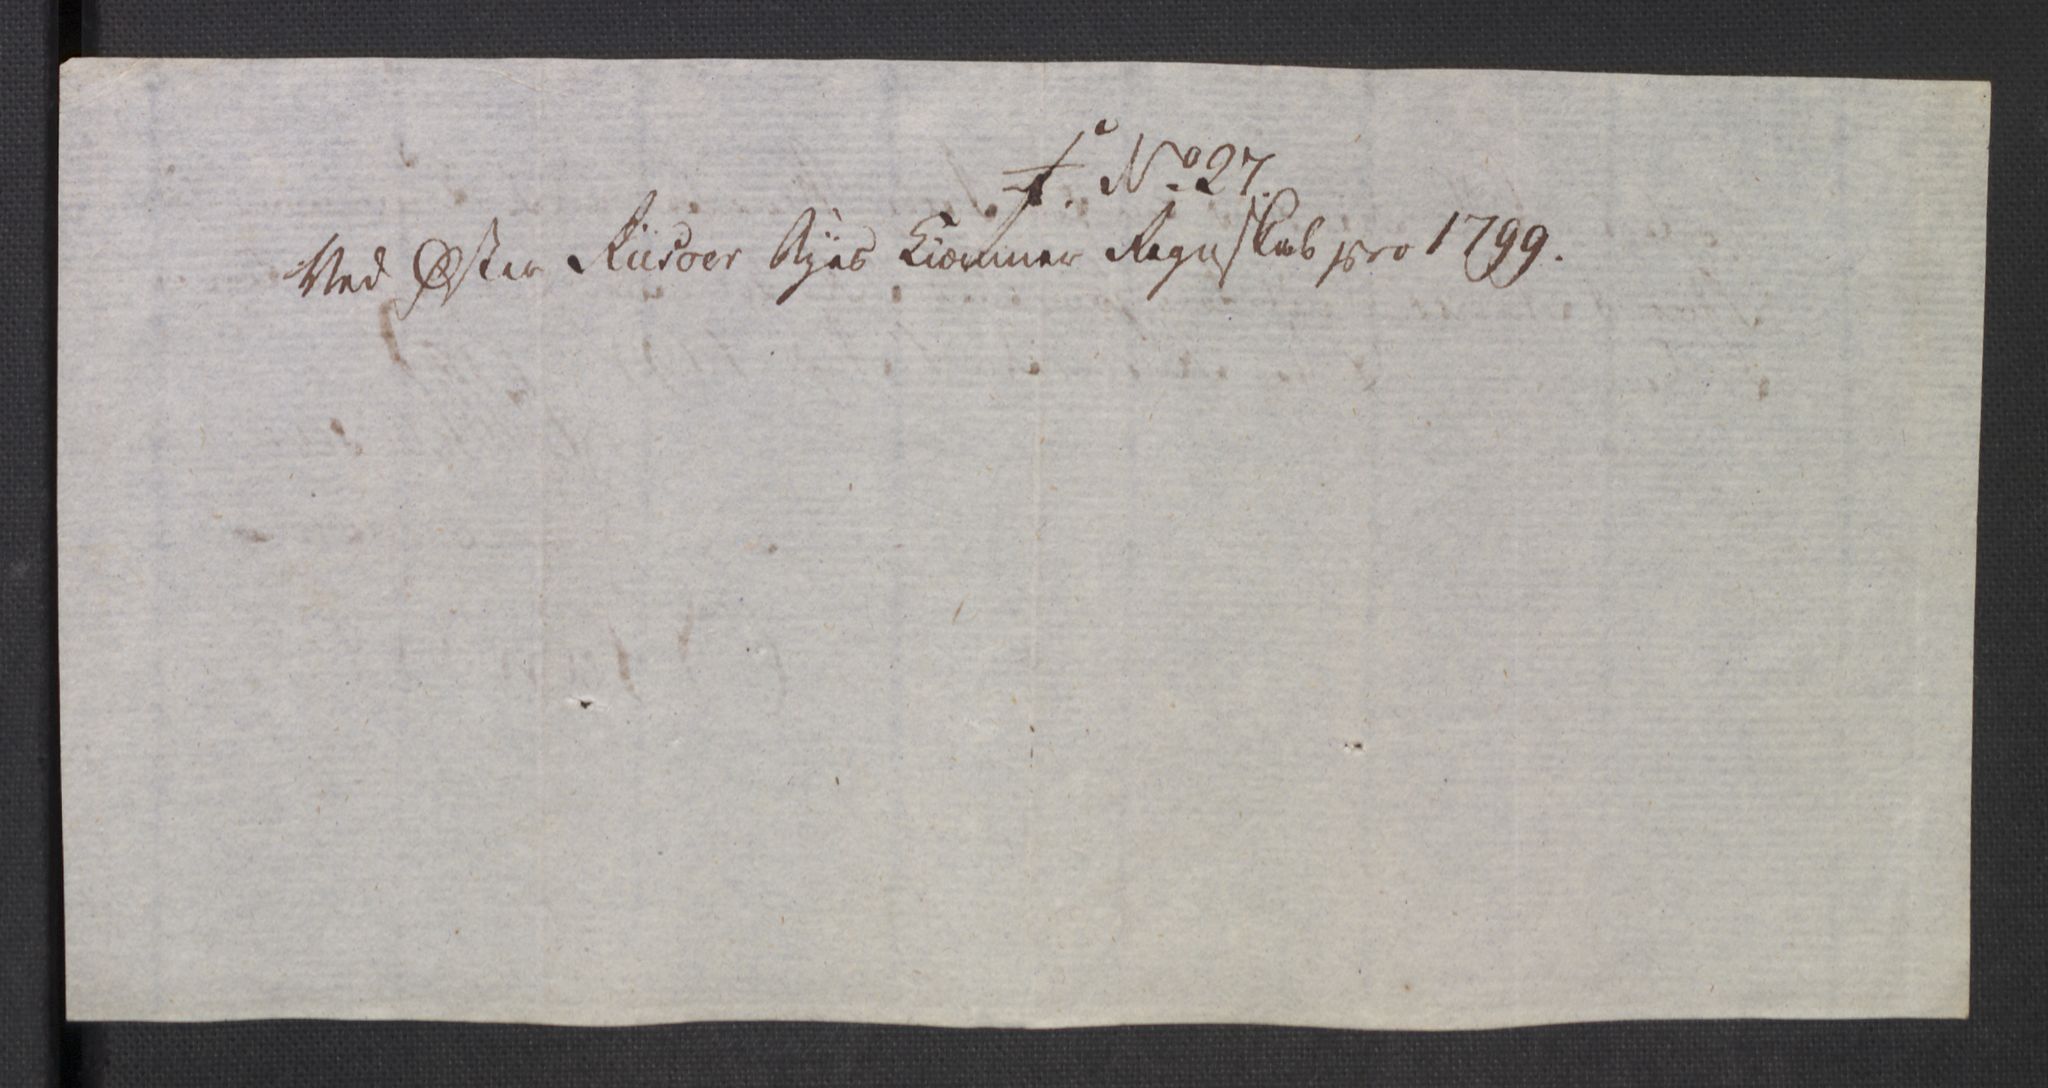 No 27.
Ved Øster Riisoer Byes Kiæmner Regnskab pro 1799.